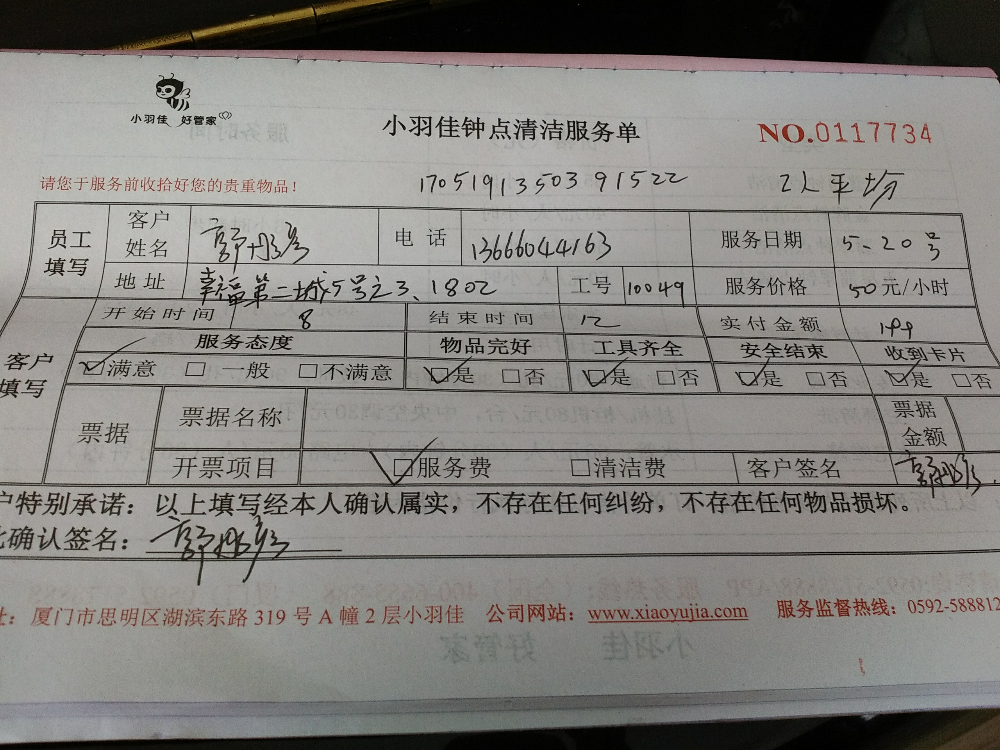 小羽佳 好管家
小羽佳钟点清洁服务单 NO.0117734
请您于服务前收拾好您的贵重物品！ 1705191350391522 2人平均
员工填写 客户姓名 电话 13666044163 服务日期 5.20号
地址 幸福第二城5号之3、1802 工号 10049 服务价格 50元/小时
开始时间 8 结束时间 12 实付金额 199
客户填写 服务态度 物品完好 工具齐全 安全结束 收到卡片
☑满意 □一般 □不满意 ☑是 □否 ☑是 □否 ☑是 □否 ☑是 □否
票据 票据名称 票据金额
开票项目 ☑服务费 □清洁费 客户签名
户特别承诺：以上填写经本人确认属实，不存在任何纠纷，不存在任何物品损坏。
此确认签名：
址：厦门市思明区湖滨东路319号A幢2层小羽佳 公司网站：www.xiaoyujia.com 服务监督热线：0592-588812